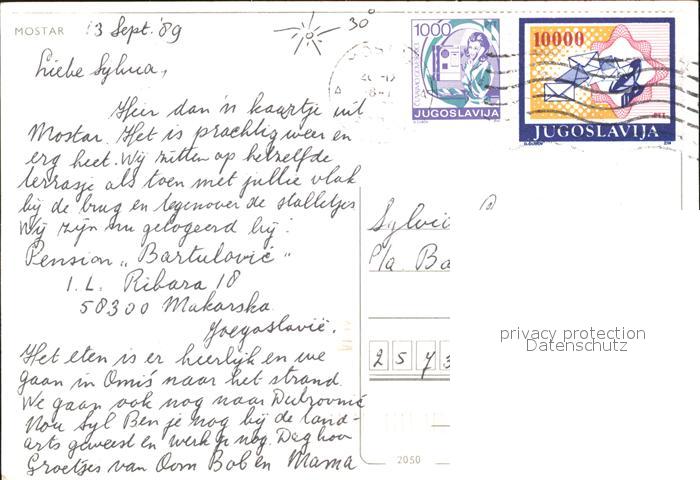 MOSTAR
13 Sept. '89
30°
Liebe Sylvia,
Hier dan 'n kaartje uit
Mostar. Het is prachtig weer en
erg heet. Wij zitten op hetzelfde
terrasje als toen met jullie vlak
bij de brug en tegenover de stalletjes
Wij zijn nu gelogeerd bij:
Pension „Bartulović"
I. L. Ribara 18
58300 Makarska
Joegoslavië.
Het eten is er heerlijk en we
gaan in Omiš naar het strand.
We gaan ook nog naar Dubrovnic
Nou Syl Ben je nog bij de land-
arts geweest en werk je nog. Dag hoor
Groetjes van Oom Bob en Mama
1000
JUGOSLAVIJA
10000
PTT
JUGOSLAVIJA
Sylvia
P/a. Ba
2573
2050
privacy protection
Datenschutz